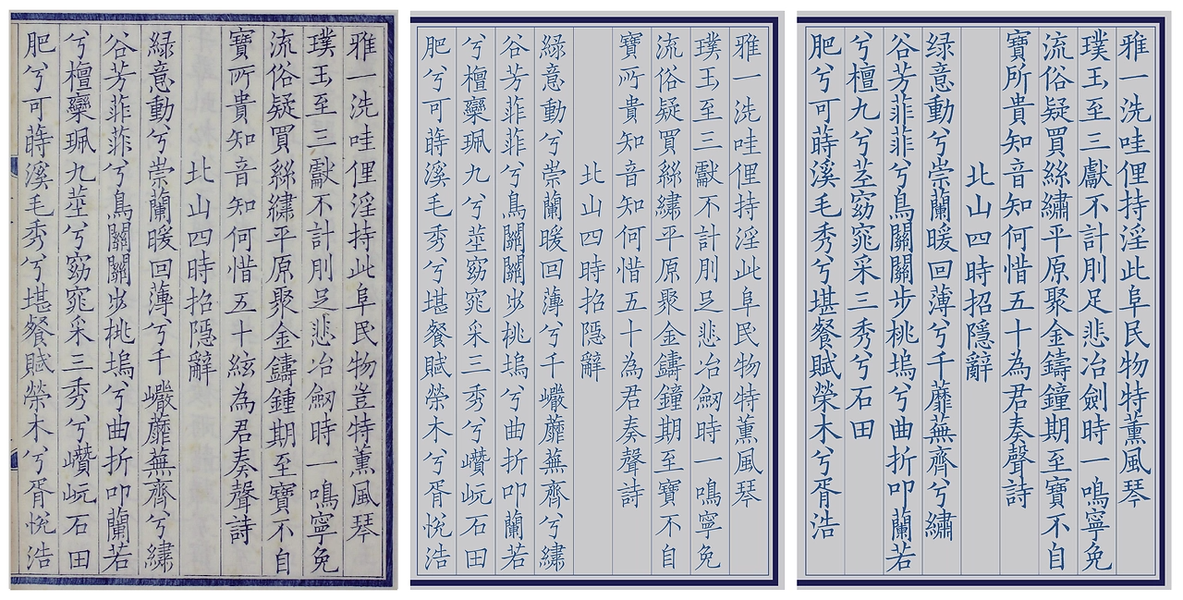 雅一洗哇俚淫持此阜民物豈特薰風琴
璞玉至三獻不計刖足悲冶劒時一鳴寧免
流俗疑買絲繡平原聚金鑄鍾期至寶不自
寶所貴知音知何惜五十絃為君奏聲詩
北山四時招隱辭
綠意動兮崇蘭暖回薄兮千巘蘼蕪齊兮繡
谷芳菲菲兮鳥關關步桃塢兮曲折叩蘭若
兮檀欒珮九莖兮窈窕采三秀兮巑岏石田
肥兮可蒔溪毛秀兮堪餐賦榮木兮胥悅浩
雅一洗哇俚持淫此阜民物特薰風琴
璞玉至三獻不計刖足悲冶劒時一鳴寧免
流俗疑買絲繡平原聚金鑄鐘期至寶不自
寶所貴知音知何惜五十為君奏聲詩
北山四時招隱辭
綠意動兮崇蘭暖回薄兮千巘蘼蕪齊兮繡
谷芳菲菲兮鳥關關步桃塢兮曲折叩蘭若
兮檀欒珮九兮莖窈窕采三秀兮巑岏石田
肥兮可蒔溪毛秀兮堪餐賦榮木兮胥悅浩
雅一洗哇俚持淫此阜民物特薰風琴
璞玉至三獻不計刖足悲冶劍時一鳴寧免
流俗疑買絲繡平原聚金鑄鐘期至寶不自
寶所貴知音知何惜五十為君奏聲詩
北山四時招隱辭
绿意動兮崇蘭暖回薄兮千蘼蕪齊兮繡
谷芳菲菲兮鳥關關步桃塢兮曲折叩蘭若
兮檀九兮茎窈窕采三秀兮石田
肥兮可蒔溪毛秀兮堪餐賦榮木兮胥浩